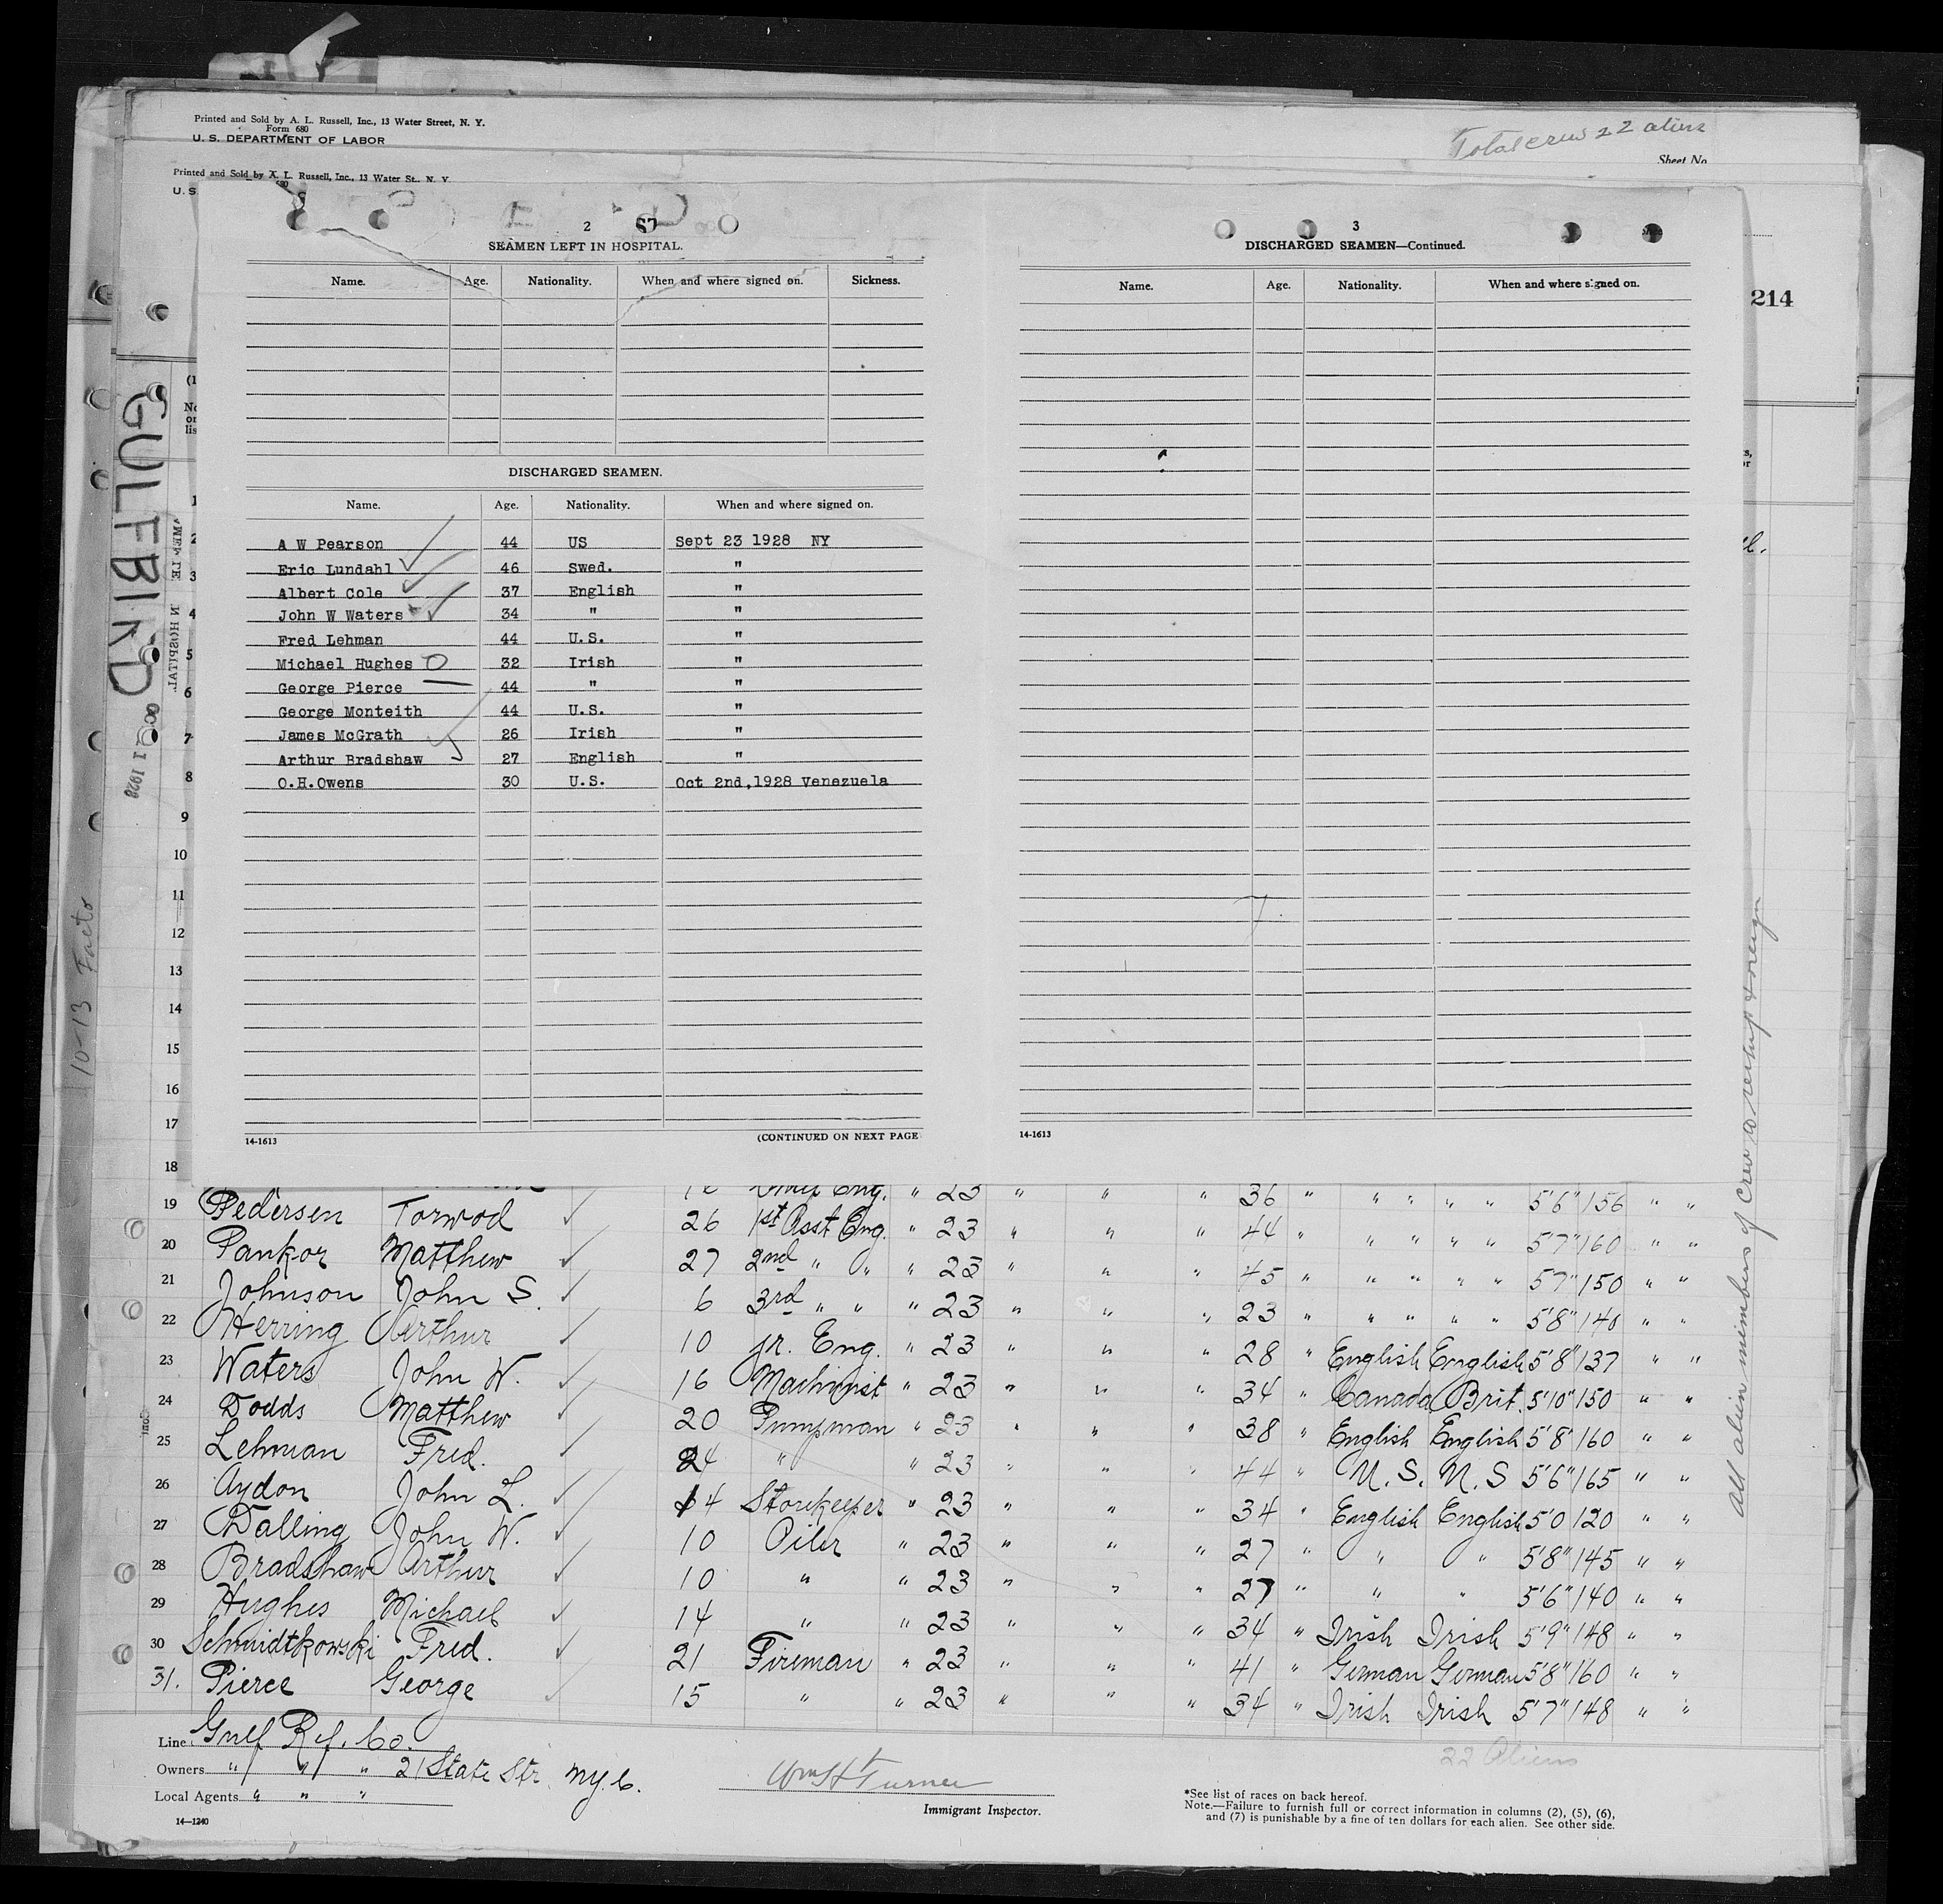 Printed and Sold by A. L. Russell, Inc., 13 Water Street, N. Y.
Form 680
U. S. DEPARTMENT OF LABOR
Total crew 22 aliens
Sheet No
Printed and Sold by A. L. Russell, Inc., 13 Water St., N. Y.
680
U. S
214
GULFBIRD
1 1928
10-13 Facto
2
SEAMEN LEFT IN HOSPITAL.
Name. Age. Nationality. When and where signed on. Sickness.
DISCHARGED SEAMEN.
Name. Age. Nationality. When and where signed on.
A W Pearson 44 US Sept 23 1928 NY
Eric Lundahl 46 Swed. "
Albert Cole 37 English "
John W Waters 34 " "
Fred Lehman 44 U.S. "
Michael Hughes 32 Irish "
George Pierce 44 " "
George Monteith 44 U.S. "
James McGrath 26 Irish "
Arthur Bradshaw 27 English "
O.H.Owens 30 U.S. Oct 2nd,1928 Venezuela
14-1613 (CONTINUED ON NEXT PAGE
3
DISCHARGED SEAMEN—Continued.
Name. Age. Nationality. When and where signed on.
14-1613
(1
No
on
lis
1
2
3
4
5
6
7
8
9
10
11
12
13
14
15
16
17
18
Eng. " 23 " " " 36 " " " " " 5'6" 156 " "
19 Pedersen Torwod 26 1st Asst Eng. " 23 " " " 44 " " " " " 5'7" 160 " "
20 Pankor Matthew 27 2nd " " " 23 " " " 45 " " " " " 5'7" 150 " "
21 Johnson John S. 6 3rd " " " 23 " " " 23 " " " " " 5'8" 140 " "
22 Herring Arthur 10 Jr. Eng. " 23 " " " 28 " English English 5'8" 137 " "
23 Waters John W. 16 Machinist " 23 " " " 34 " Canada Brit. 5'10" 150 " "
24 Dodds Matthew 20 Pumpman " 23 " " " 38 " English English 5'8" 160 " "
25 Lehman Fred. 24 " " 23 " " " 44 " U.S. U.S 5'6" 165 " "
26 Aydon John L. 14 Storekeeper " 23 " " " 34 " English English 5'0 120 " "
27 Dalling John W. 10 Oiler " 23 " " " 27 " " " 5'8" 145 " "
28 Bradshaw Arthur 10 " " 23 " " " 27 " " " 5'6" 140 " "
29 Hughes Michael 14 " " 23 " " " 34 " Irish Irish 5'9" 148 " "
30 Schmidtkowski Fred. 21 Fireman " 23 " " " 41 " German German 5'8" 160 " "
31. Pierce George 15 " " 23 " " " 34 " Irish Irish 5'7" 148 " "
All alien members of crew to reship foreign
Line Gulf Ref. Co.
Owners " " " 21 State Str. N.Y.C.
Local Agents " " "
14—1240
Wm H Turner
Immigrant Inspector.
22 Aliens
*See list of races on back hereof.
Note.—Failure to furnish full or correct information in columns (2), (5), (6),
and (7) is punishable by a fine of ten dollars for each alien. See other side.